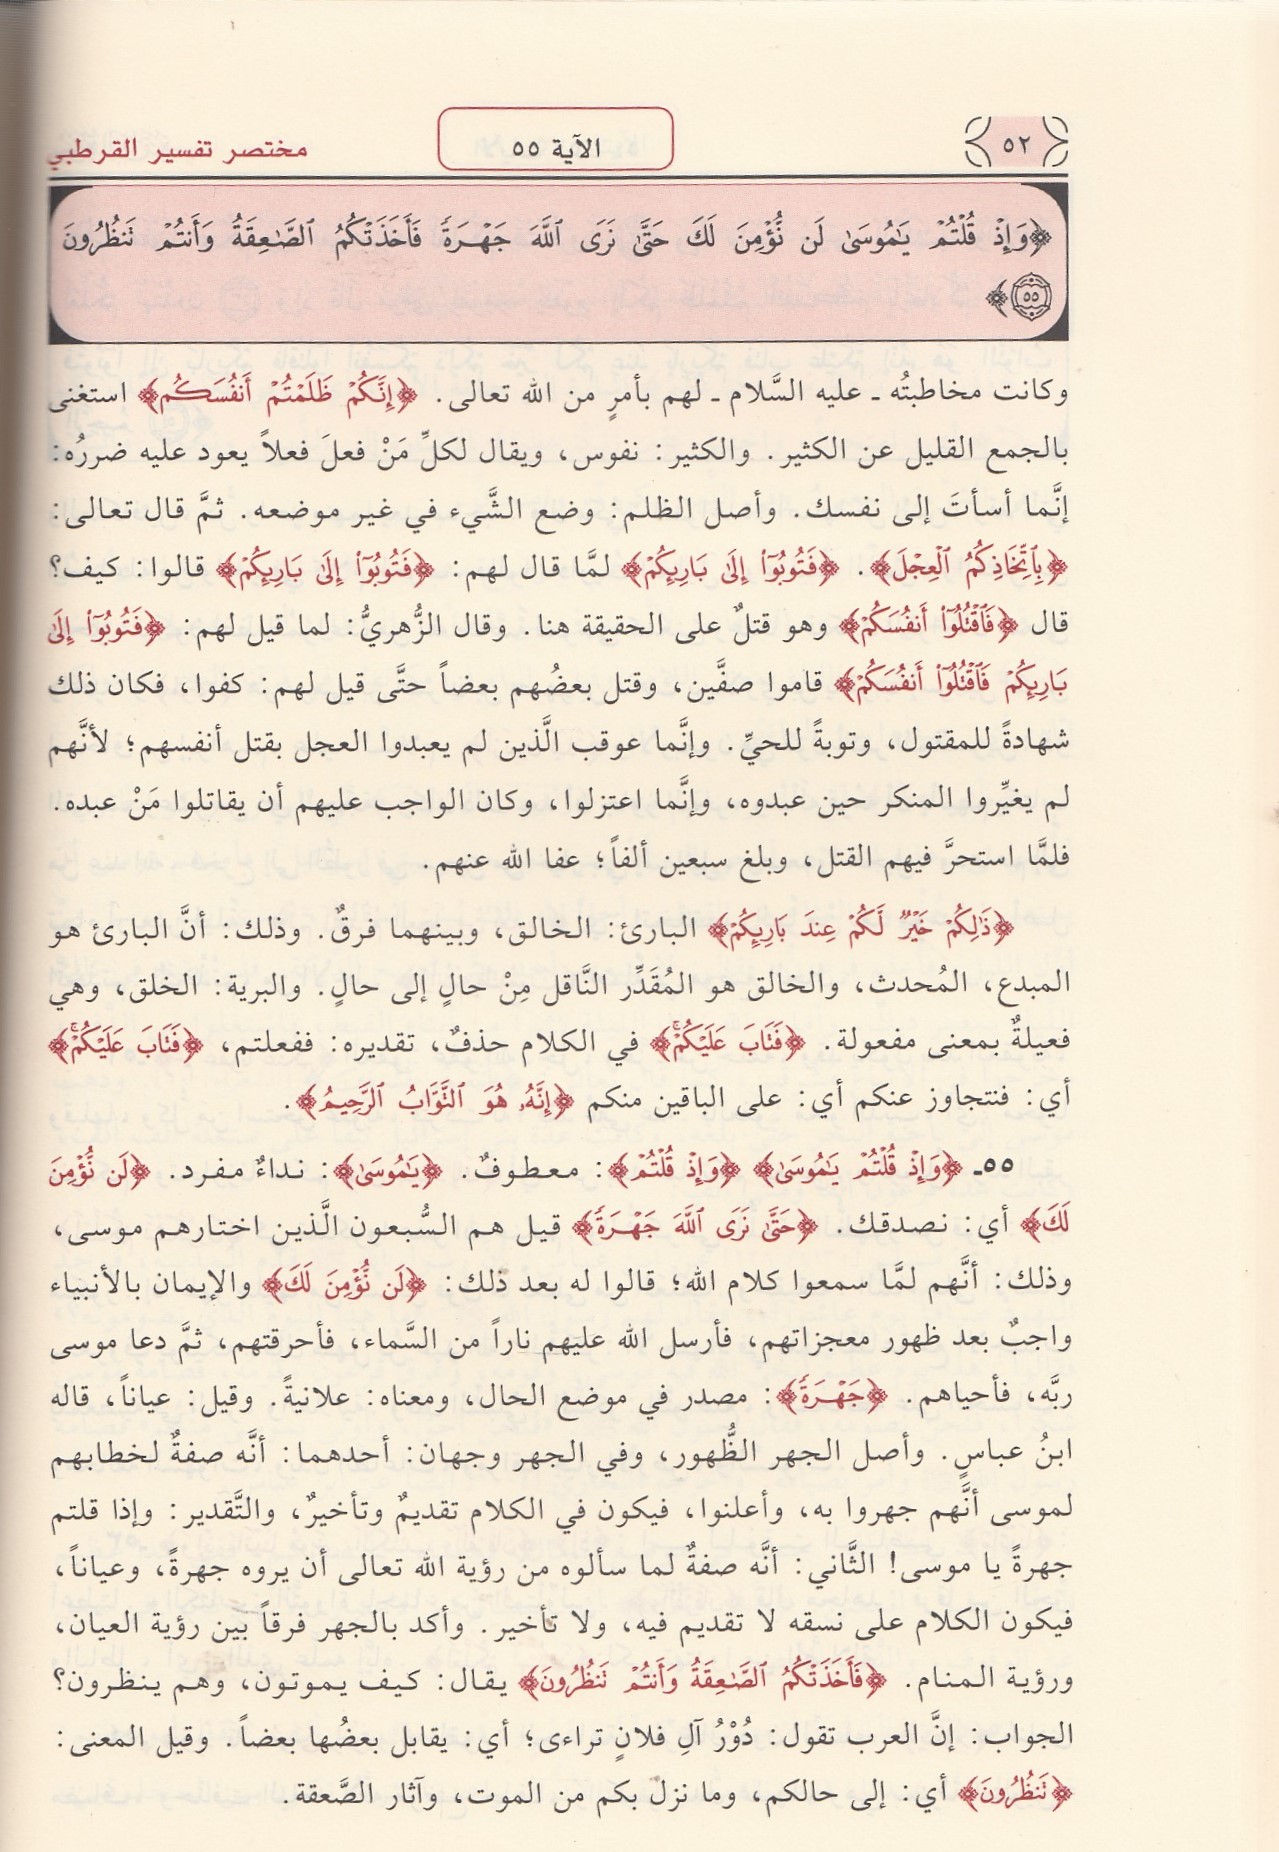 ٥٢
الآية ٥٥
مختصر تفسير القرطبي
﴿وَإِذْ قُلْتُمْ يَٰمُوسَىٰ لَن نُّؤْمِنَ لَكَ حَتَّىٰ نَرَى ٱللَّهَ جَهْرَةً فَأَخَذَتْكُمُ ٱلصَّٰعِقَةُ وَأَنتُمْ تَنظُرُونَ
٥٥﴾
وكانت مخاطبتُه ـ عليه السَّلام ـ لهم بأمرٍ من الله تعالى. ﴿إِنَّكُمْ ظَلَمْتُمْ أَنفُسَكُم﴾ استغنى
بالجمع القليل عن الكثير. والكثير: نفوس، ويقال لكلِّ مَنْ فعلَ فعلاً يعود عليه ضررُه:
إنَّما أسأتَ إلى نفسك. وأصل الظلم: وضع الشَّيء في غير موضعه. ثمَّ قال تعالى:
﴿بِٱتِّخَاذِكُمُ ٱلْعِجْلَ﴾. ﴿فَتُوبُوٓا۟ إِلَىٰ بَارِئِكُمْ﴾ لمَّا قال لهم: ﴿فَتُوبُوٓا۟ إِلَىٰ بَارِئِكُمْ﴾ قالوا: كيف؟
قال ﴿فَٱقْتُلُوٓا۟ أَنفُسَكُمْ﴾ وهو قتلٌ على الحقيقة هنا. وقال الزُّهريُّ: لما قيل لهم: ﴿فَتُوبُوٓا۟ إِلَىٰ
بَارِئِكُمْ فَٱقْتُلُوٓا۟ أَنفُسَكُمْ﴾ قاموا صفَّين، وقتل بعضُهم بعضاً حتَّى قيل لهم: كفوا، فكان ذلك
شهادةً للمقتول، وتوبةً للحيِّ. وإنَّما عوقب الَّذين لم يعبدوا العجل بقتل أنفسهم؛ لأنَّهم
لم يغيِّروا المنكر حين عبدوه، وإنَّما اعتزلوا، وكان الواجب عليهم أن يقاتلوا مَنْ عبده.
فلمَّا استحرَّ فيهم القتل، وبلغ سبعين ألفاً؛ عفا الله عنهم.
﴿ذَٰلِكُمْ خَيْرٌ لَّكُمْ عِندَ بَارِئِكُمْ﴾ البارئ: الخالق، وبينهما فرقٌ. وذلك: أنَّ البارئ هو
المبدع، المُحدث، والخالق هو المُقَدِّر النَّاقل مِنْ حالٍ إلى حالٍ. والبرية: الخلق، وهي
فعيلةٌ بمعنى مفعولة. ﴿فَتَابَ عَلَيْكُمْۚ﴾ في الكلام حذفٌ، تقديره: ففعلتم، ﴿فَتَابَ عَلَيْكُمْۚ﴾
أي: فنتجاوز عنكم أي: على الباقين منكم ﴿إِنَّهُۥ هُوَ ٱلتَّوَّابُ ٱلرَّحِيمُ﴾.
٥٥ـ ﴿وَإِذْ قُلْتُمْ يَٰمُوسَىٰ﴾ ﴿وَإِذْ قُلْتُمْ﴾: معطوفٌ. ﴿يَٰمُوسَىٰ﴾: نداءٌ مفرد. ﴿لَن نُّؤْمِنَ
لَكَ﴾ أي: نصدقك. ﴿حَتَّىٰ نَرَى ٱللَّهَ جَهْرَةً﴾ قيل هم السُّبعون الَّذين اختارهم موسى،
وذلك: أنَّهم لمَّا سمعوا كلام الله؛ قالوا له بعد ذلك: ﴿لَن نُّؤْمِنَ لَكَ﴾ والإيمان بالأنبياء
واجبٌ بعد ظهور معجزاتهم، فأرسل الله عليهم ناراً من السَّماء، فأحرقتهم، ثمَّ دعا موسى
ربَّه، فأحياهم. ﴿جَهْرَةً﴾: مصدر في موضع الحال، ومعناه: علانيةً. وقيل: عياناً، قاله
ابنُ عباسٍ. وأصل الجهر الظُّهور، وفي الجهر وجهان: أحدهما: أنَّه صفةٌ لخطابهم
لموسى أنَّهم جهروا به، وأعلنوا، فيكون في الكلام تقديمٌ وتأخيرٌ، والتَّقدير: وإذا قلتم
جهرةً يا موسى! الثَّاني: أنَّه صفةٌ لما سألوه من رؤية الله تعالى أن يروه جهرةً، وعياناً،
فيكون الكلام على نسقه لا تقديم فيه، ولا تأخير. وأكد بالجهر فرقاً بين رؤية العيان،
ورؤية المنام. ﴿فَأَخَذَتْكُمُ ٱلصَّٰعِقَةُ وَأَنتُمْ تَنظُرُونَ﴾ يقال: كيف يموتون، وهم ينظرون؟
الجواب: إنَّ العرب تقول: دُوْرُ آلِ فلانٍ تراءى؛ أي: يقابل بعضُها بعضاً. وقيل المعنى:
﴿تَنظُرُونَ﴾ أي: إلى حالكم، وما نزل بكم من الموت، وآثار الصَّعقة.